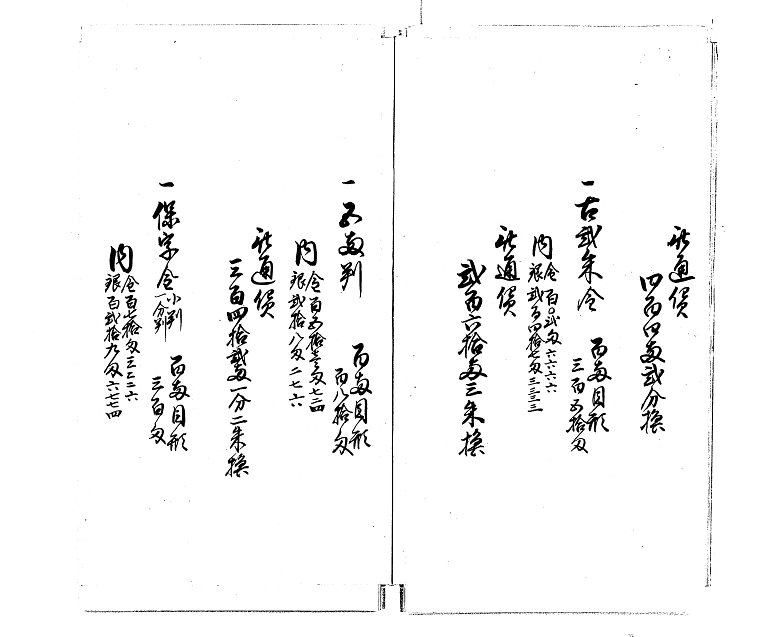 新通貨
四百四両弐分換
一古弐朱金 百両目形
三百五拾匁
内 金百〇弐匁六六六六
銀弐百四拾七匁三三三三
新通貨
弐百六拾両三朱換
一五両判 百両目形
百八拾匁
内 金百五拾壱匁七二四
銀弐拾八匁二七六
新通貨
三百四拾弐両一分二朱換
一保字金 小判
一分判 百両目形
三百匁
内 金百七拾匁三二二六
銀百弐拾九匁六七七四